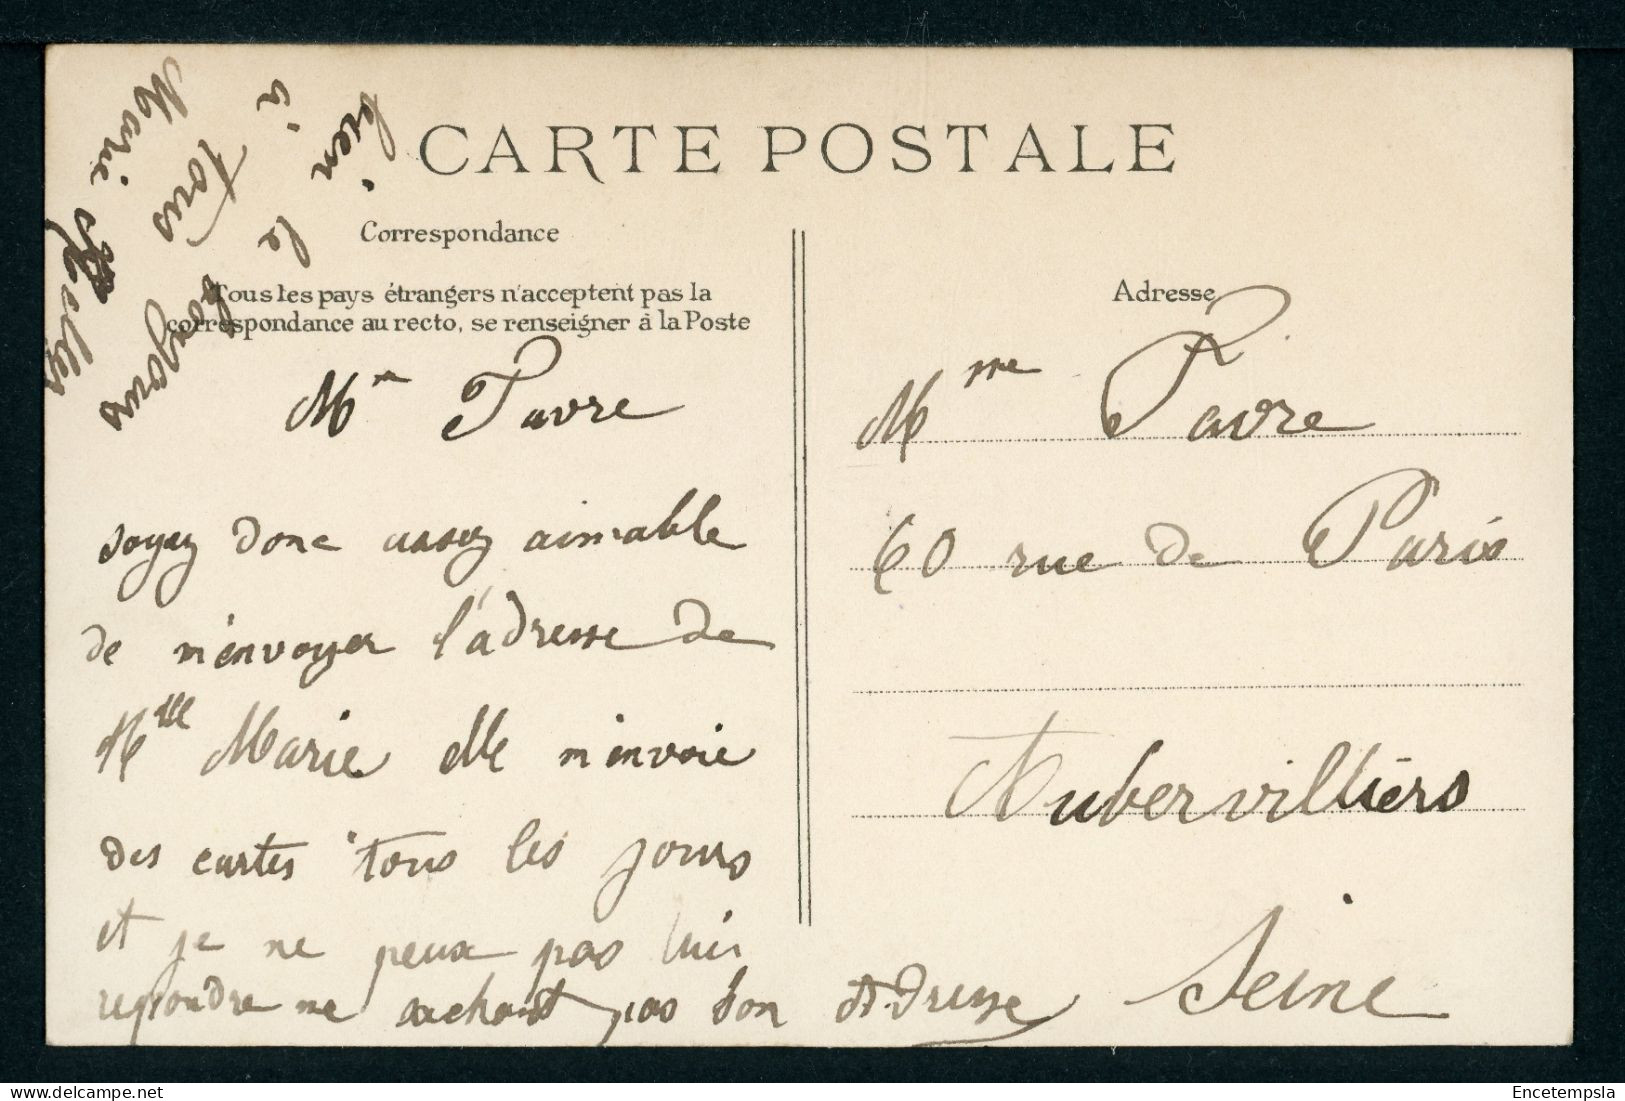 CARTE POSTALE
Correspondance
Tous les pays étrangers n'acceptent pas la
correspondance au recto, se renseigner à la Poste
Mme Favre
soyez donc assez aimable
de m'envoyer l'adresse de
Mlle Marie elle m'envoie
des cartes tous les jours
et je ne peux pas lui
repondre ne sachant pas son Adresse
bien le bonjour
à tous
Marie
Adresse
Mme Favre
60 rue de Paris
Aubervilliers
Seine
delcampe.net
Encetempsla